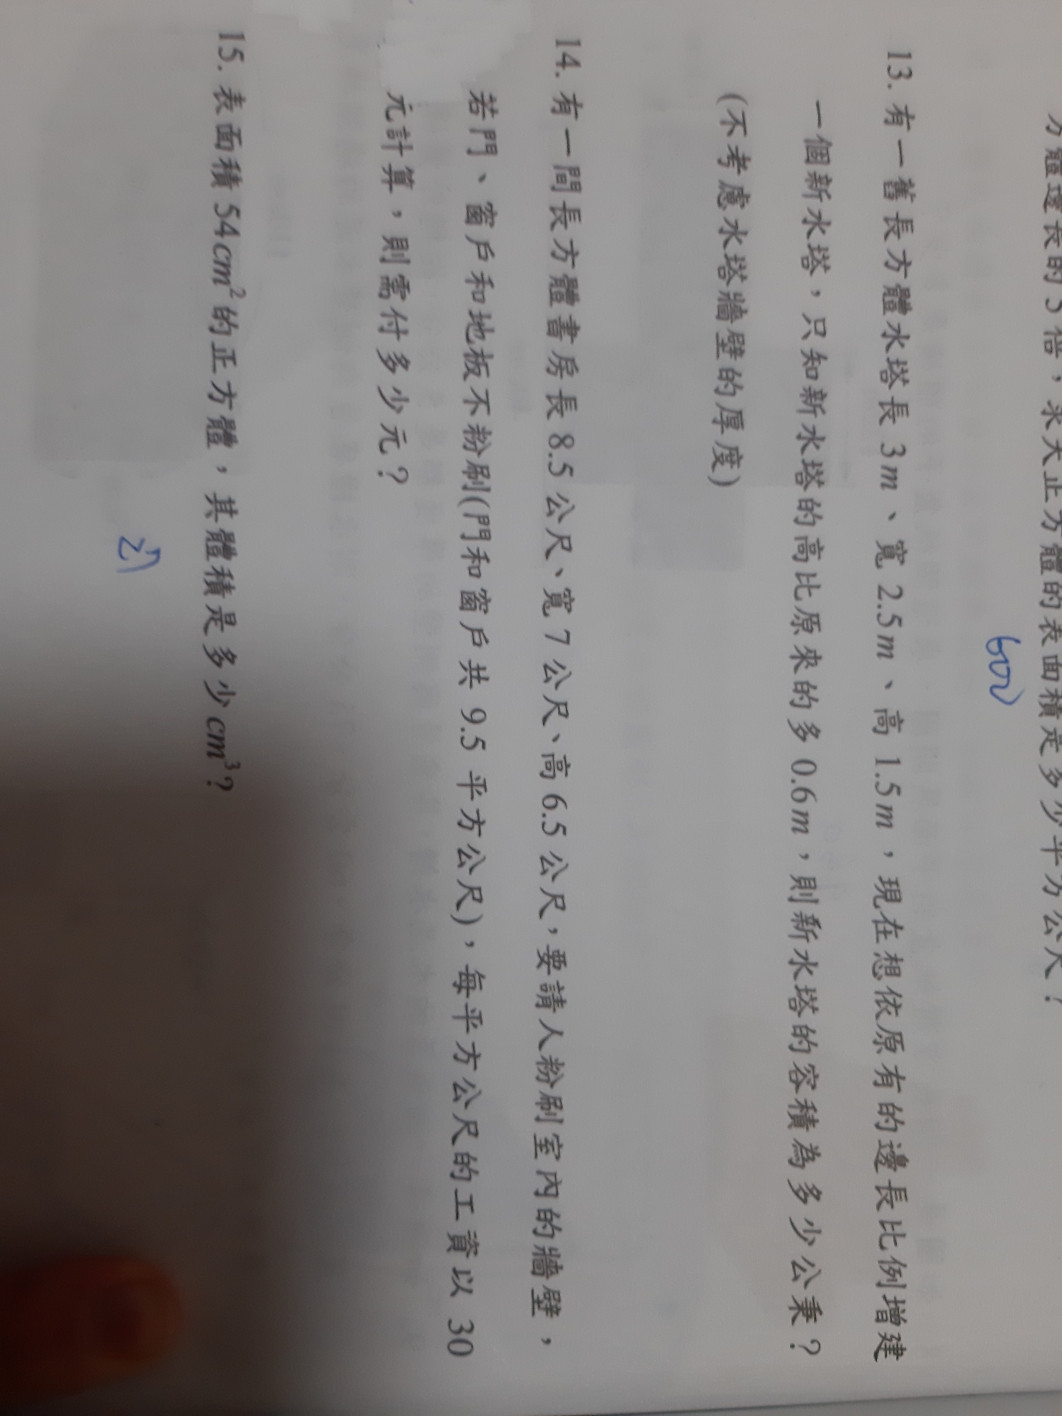 方體邊長的3倍，求大正方體的表面積是多少平方公尺？
600
13. 有一舊長方體水塔長 3m、寬 2.5m、高 1.5m，現在想依原有的邊長比例增建
一個新水塔，只知新水塔的高比原來的多 0.6m，則新水塔的容積為多少公秉？
(不考慮水塔牆壁的厚度)
14. 有一間長方體書房長 8.5 公尺、寬 7 公尺、高 6.5 公尺，要請人粉刷室內的牆壁，
若門、窗戶和地板不粉刷(門和窗戶共 9.5 平方公尺)，每平方公尺的工資以 30
元計算，則需付多少元？
15. 表面積 54cm²的正方體，其體積是多少 cm³？
27